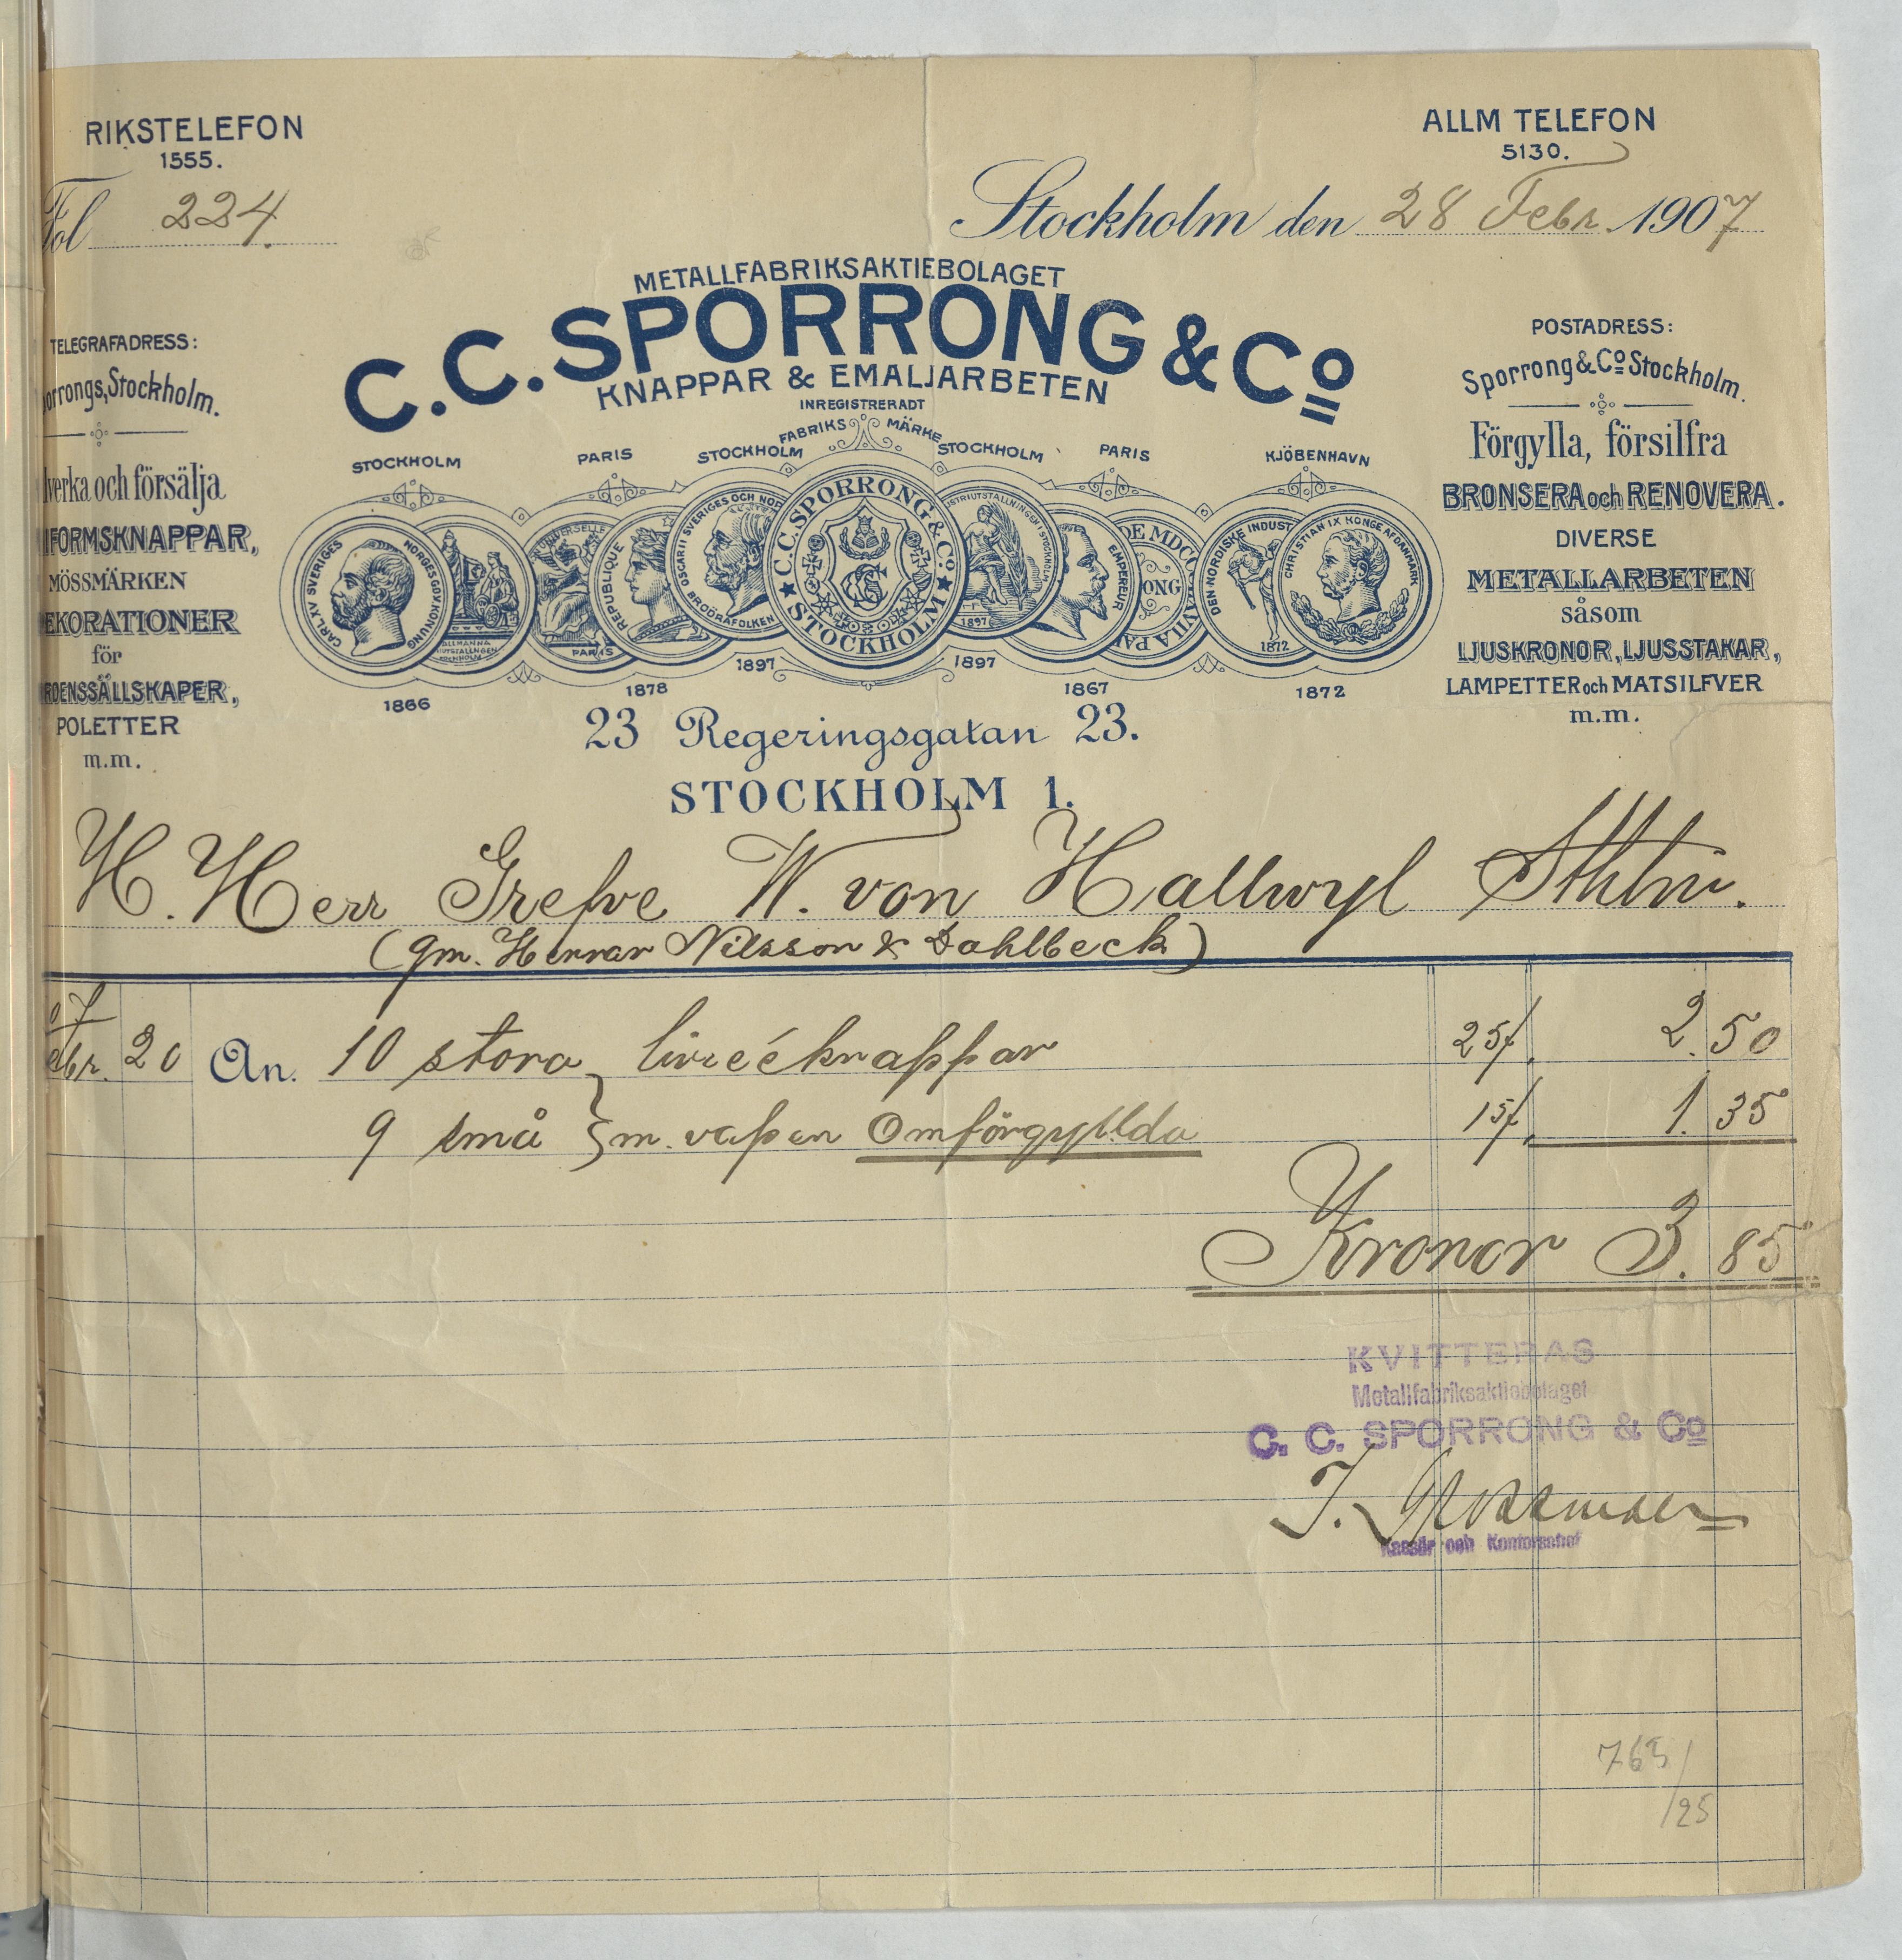 RIKSTELEFON
1555.
ALLM TELEFON
5130.
Fol 224.
Stockholm den 28 Febr. 1907
METALLFABRIKSAKTIEBOLAGET
C.C. SPORRONG & Co
KNAPPAR & EMALJARBETEN
INREGISTRERADT
FABRIKS MÄRKE
TELEGRAFADRESS:
orrongs, Stockholm.
verka och försälja
FORMSKNAPPAR,
MÖSSMÄRKEN
EKORATIONER
för
RDENSSÄLLSKAPER,
POLETTER
m.m.
POSTADRESS:
Sporrong & Co Stockholm.
Förgylla, försilfra
BRONSERA och RENOVERA.
DIVERSE
METALLARBETEN
såsom
LJUSKRONOR, LJUSSTAKAR,
LAMPETTER och MATSILFVER
m.m.
STOCKHOLM PARIS STOCKHOLM STOCKHOLM PARIS KJÖBENHAVN
CARL XV SVERIGES NORGES GÖT. KONUNG
ALLMÄNNA
UNIVERSELLE
PARIS
REPUBLIQUE
OSCAR II SVERIGES OCH NOR
BRÖDRAFOLKEN
C.C. SPORRONG & Co.
STOCKHOLM
1897
EMPEREUR
DE MDCC
ONG
DEN NORDISKE INDUST
1872
CHRISTIAN IX KONGE AF DANMARK
1866 1878 1897 1897 1867 1872
23 Regeringsgatan 23.
STOCKHOLM 1.
H. Herr Grefve W. von Hallwyl Sthlm.
(gm. Herrar Nilsson & Dahlbeck)
07
ebr. 20 An. 10 stora } livréeknappar 25/. 2.50
9 små } m. vapen Omförgyllda 15/. 1.35
Kronor 3.85
KVITTERAS
Metallfabriksaktiebolaget
C. C. SPORRONG & Co
Kassör och Kontorschef
765/
/25